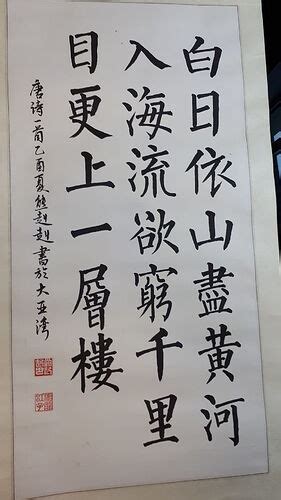 白日依山盡黃河
入海流欲窮千里
目更上一層樓
唐詩一首乙酉夏熊赳赳書於大亞灣